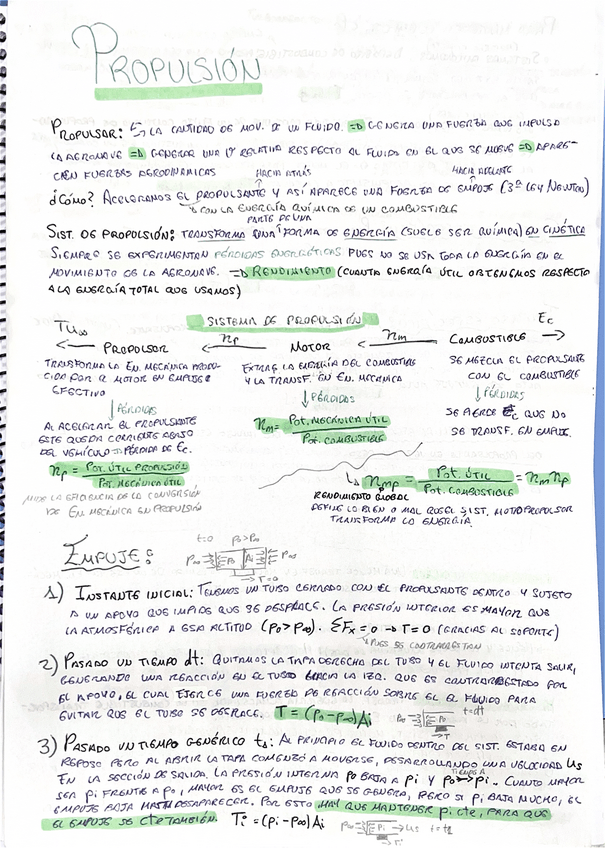 PROPULSIÓN
PROPULSAR: ↳ LA CANTIDAD DE MOV. DE UN FLUIDO. ⇒ GENERA UNA FUERZA QUE IMPULSA
LA AERONAVE ⇒ GENERAR UNA V RELATIVA RESPECTO AL FLUIDO EN EL QUE SE MUEVE ⇒ APARE-
CEN FUERZAS AERODINÁMICAS
HACIA ATRÁS
HACIA ADELANTE
¿CÓMO? ACELERAMOS EL PROPULSANTE Y ASÍ APARECE UNA FUERZA DE EMPUJE (3ª LEY NEWTON)
↳ CON LA ENERGÍA QUÍMICA DE UN COMBUSTIBLE
PARTE DE UNA
SIST. DE PROPULSIÓN: TRANSFORMA UNA FORMA DE ENERGÍA (SUELE SER QUÍMICA) EN CINÉTICA
SIEMPRE SE EXPERIMENTAN PÉRDIDAS ENERGÉTICAS PUES NO SE USA TODA LA ENERGÍA EN EL
MOVIMIENTO DE LA AERONAVE. ⇒ RENDIMIENTO (CUANTA ENERGÍA ÚTIL OBTENEMOS RESPECTO
A LA ENERGÍA TOTAL QUE USAMOS)
SISTEMA DE PROPULSIÓN
Tu∞
← PROPULSOR
ηp
←
MOTOR
ηm
←
COMBUSTIBLE →
Ec
TRANSFORMA LA EN. MECÁNICA PRODU-
CIDA POR EL MOTOR EN EMPUJE
EFECTIVO
↓ PÉRDIDAS
AL ACELERAR EL PROPULSANTE
ESTE QUEDA CORRIENTE ABAJO
DEL VEHÍCULO → PÉRDIDA DE Ec.
ηp = POT. ÚTIL PROPULSIÓN / POT. MECÁNICA ÚTIL
MIDE LA EFICIENCIA DE LA CONVERSIÓN
DE EN. MECÁNICA EN PROPULSIÓN
EXTRAE LA ENERGÍA DEL COMBUSTIBLE
Y LA TRANSF. EN EN. MECÁNICA
↓ PÉRDIDAS
ηm = POT. MECÁNICA ÚTIL / POT. COMBUSTIBLE
SE MEZCLA EL PROPULSANTE
CON EL COMBUSTIBLE
↓ PÉRDIDAS
SE PIERDE Ec QUE NO
SE TRANSF. EN EMPUJE.
↳ ηmp = POT. ÚTIL / POT. COMBUSTIBLE = ηm ηp
RENDIMIENTO GLOBAL
DEFINE LO BIEN O MAL QUE EL SIST. MOTOPROPULSOR
TRANSFORMA LA ENERGÍA.
EMPUJE:
t=0 p0>p∞
p∞ P0 Ai p∞
T=0
1) INSTANTE INICIAL: TENEMOS UN TUBO CERRADO CON EL PROPULSANTE DENTRO Y SUJETO
A UN APOYO QUE IMPIDE QUE SE DESPLACE. LA PRESIÓN INTERIOR ES MAYOR QUE
LA ATMOSFÉRICA A ESA ALTITUD (p0>p∞). ΣFx=0 → T=0 (GRACIAS AL SOPORTE)
↳ PUES SE CONTRARRESTAN
2) PASADO UN TIEMPO dt: QUITAMOS LA TAPA DERECHA DEL TUBO Y EL FLUIDO INTENTA SALIR,
GENERANDO UNA REACCIÓN EN EL TUBO HACIA LA IZQ. QUE ES CONTRARRESTADO POR
EL APOYO, EL CUAL EJERCE UNA FUERZA DE REACCIÓN SOBRE EL FLUIDO PARA
EVITAR QUE EL TUBO SE DESPLACE. T = (p0-p∞)Ai
p∞ p0 t=dt
→ T
3) PASADO UN TIEMPO GENÉRICO t1: AL PRINCIPIO EL FLUIDO DENTRO DEL SIST. ESTABA EN
REPOSO PERO AL ABRIR LA TAPA COMENZÓ A MOVERSE, DESARROLLANDO UNA VELOCIDAD us
EN LA SECCIÓN DE SALIDA. LA PRESIÓN INTERNA p0 BAJA A pi Y p0 → pi. CUANTO MAYOR
SEA pi FRENTE A p0, MAYOR ES EL EMPUJE QUE SE GENERA, PERO SI pi BAJA MUCHO, EL
EMPUJE BAJA HASTA DESAPARECER. POR ESTO HAY QUE MANTENER pi cte, PARA QUE
EL EMPUJE SEA cte TAMBIÉN. Ti = (pi-p∞)Ai
p∞ pi → us t=t1